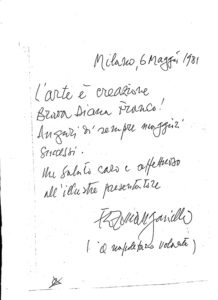 Milano, 6 Maggio 1981
L'arte è creazione
Brava Diana Franco!
Auguri di sempre maggiori
successi.
Un saluto caro e affettuoso
all'illustre presentatore